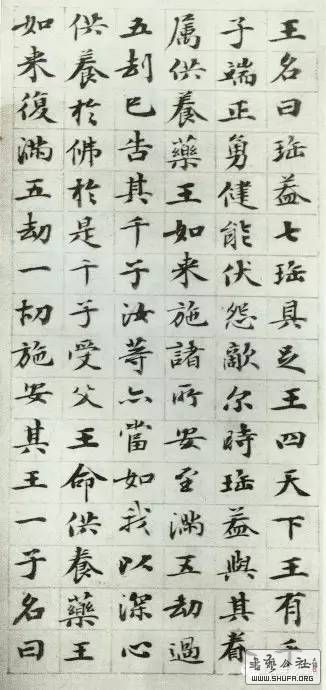 王名曰珤盖七珤具足王四天下王有千
子端正勇健能伏怨敵尔時珤盖與其眷
属供養藥王如来施諸所安至滿五劫過
五劫已告其千子汝等亦當如我以深心
供養於佛於是千子受父王命供養藥王
如来復滿五劫一切施安其王一子名曰
书艺公社
WWW.SHUFA.ORG